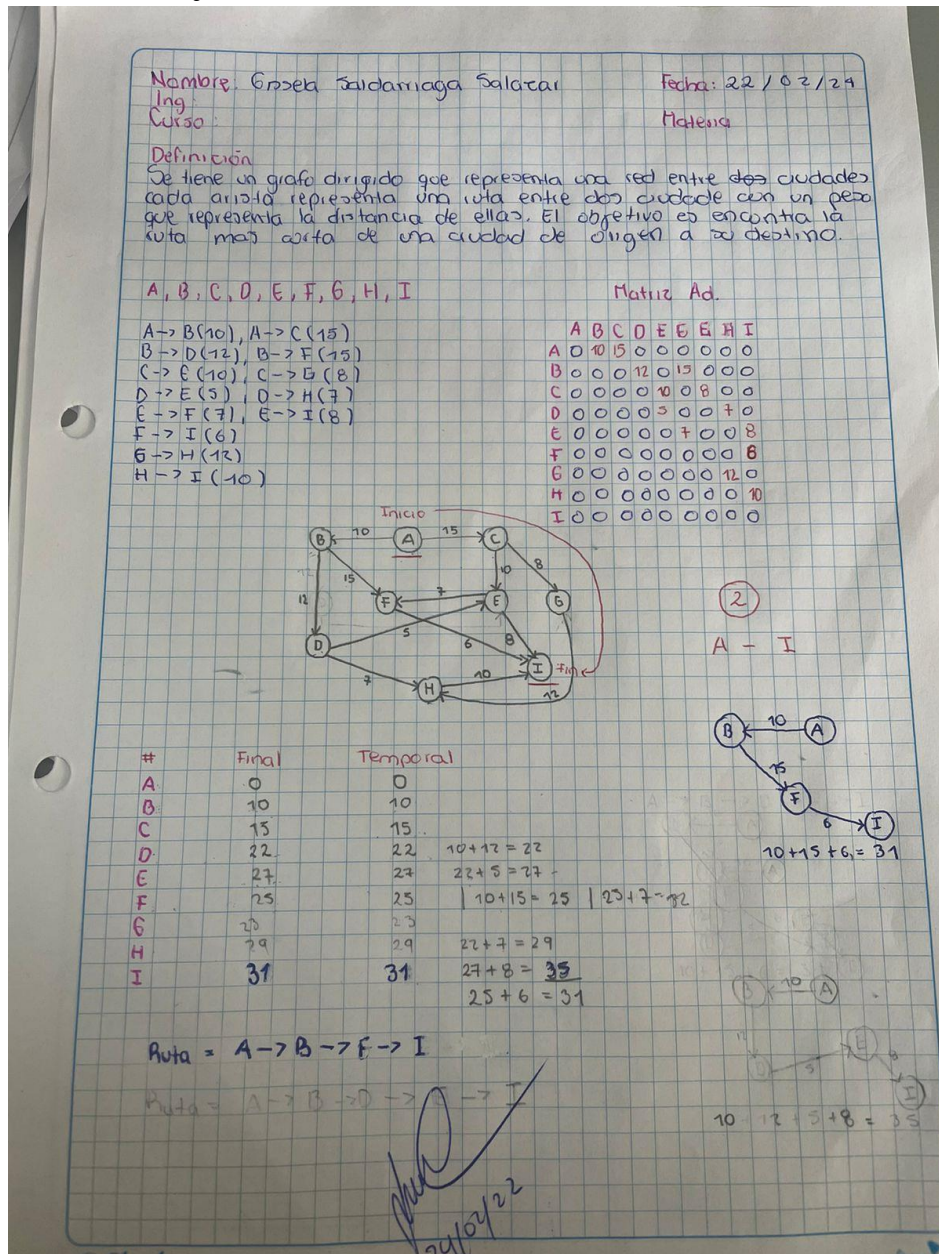 Nombre: Saldarriaga Salazar Fecha: 22/02/24
Ing:
Curso: Materia
Definición
Se tiene un grafo dirigido que representa una red entre dos ciudades
cada arista representa una ruta entre dos ciudade con un peso
que representa la distancia de ellas. El objetivo es encontra la
ruta mas corta de una ciudad de origen a su destino.
A, B, C, D, E, F, G, H, I
A -> B(10), A -> C(15)
B -> D(12), B -> F(15)
C -> E(10), C -> G(8)
D -> E(5), D -> H(7)
E -> F(7), E -> I(8)
F -> I(6)
G -> H(12)
H -> I(10)
Matriz Ad.
A B C D E E E H I
A 0 10 15 0 0 0 0 0 0
B 0 0 0 12 0 15 0 0 0
C 0 0 0 0 10 0 8 0 0
D 0 0 0 0 5 0 0 7 0
E 0 0 0 0 0 7 0 0 8
F 0 0 0 0 0 0 0 0 6
G 0 0 0 0 0 0 0 12 0
H 0 0 0 0 0 0 0 0 10
I 0 0 0 0 0 0 0 0
Inicio
B 10 A 15 C
12 15 10 8
F 7 E G
5 6 8
D
I Fin
7 H 10 12
2
A - I
B 10 A
15
F
6 I
10+15+6 = 31
# Final Temporal
A 0 0
B 10 10
C 15 15
D 22 22 10+12 = 22
E 27 27 22+5 = 27
F 25 25 | 10+15 = 25 | 25+7 = 32
G 23 23
H 29 29 22+7 = 29
I 31 31 27+8 = 35
25+6 = 31
Ruta = A -> B -> F -> I
Ruta = A -> B -> D -> E -> I
B 10 A
12
D 5 E
8
I
10 + 12 + 5 + 8 = 35
24/02/22